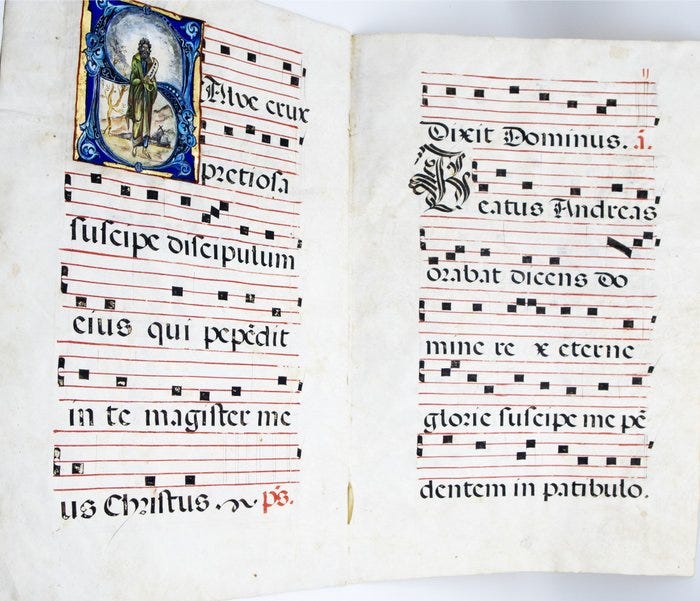 Salve crux
pretiosa
suscipe discipulum
eius qui pepēdit
in te magister me
us Christus. ps.
Dixit Dominus. ā.
Beatus Andreas
orabat dicens Do
mine re x eterne
glorie suscipe me pē
dentem in patibulo.